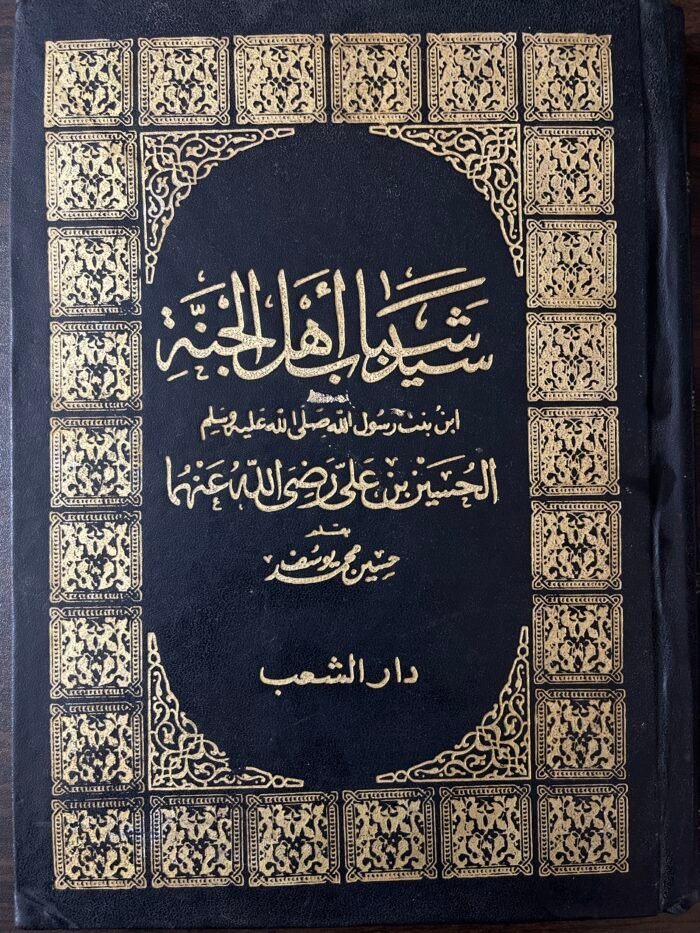 سيد شباب أهل الجنة
ابن بنت رسول الله صلى الله عليه وسلم
الحسين بن على رضى الله عنهما
بقلم
حسين محمد يوسف
دار الشعب